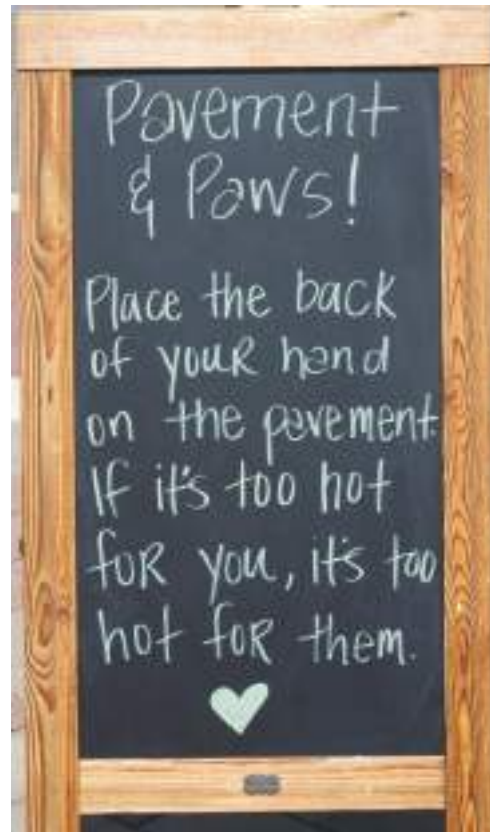 Pavement
& Paws!
Place the back
of your hand
on the pavement.
If it's too hot
for you, it's too
hot for them.